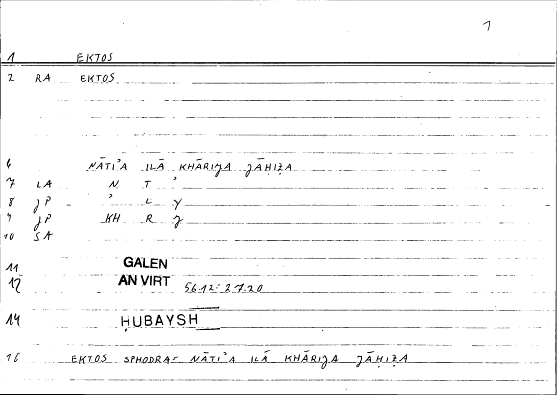 1
1 EKTOS
2 RA EKTOS
6 NĀTIʾA ILĀ KHĀRIJA JĀḤIẒA
7 LA N T ʾ
8 JP ʾ L Y
9 JP KH R J
10 SA
11 GALEN
12 AN VIRT 56.12: 2.7.20
14 ḤUBAYSH
16 EKTOS SPHODRA- NĀTIʾA ILĀ KHĀRIJA JĀḤIẒA